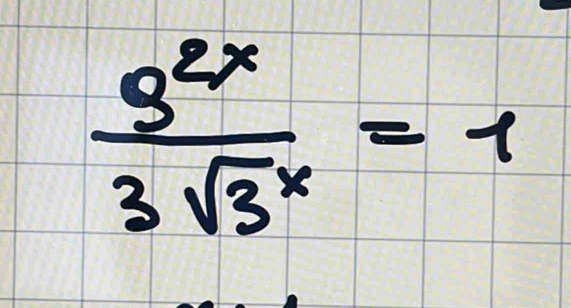 9^{2x} / 3 √3^x = 1